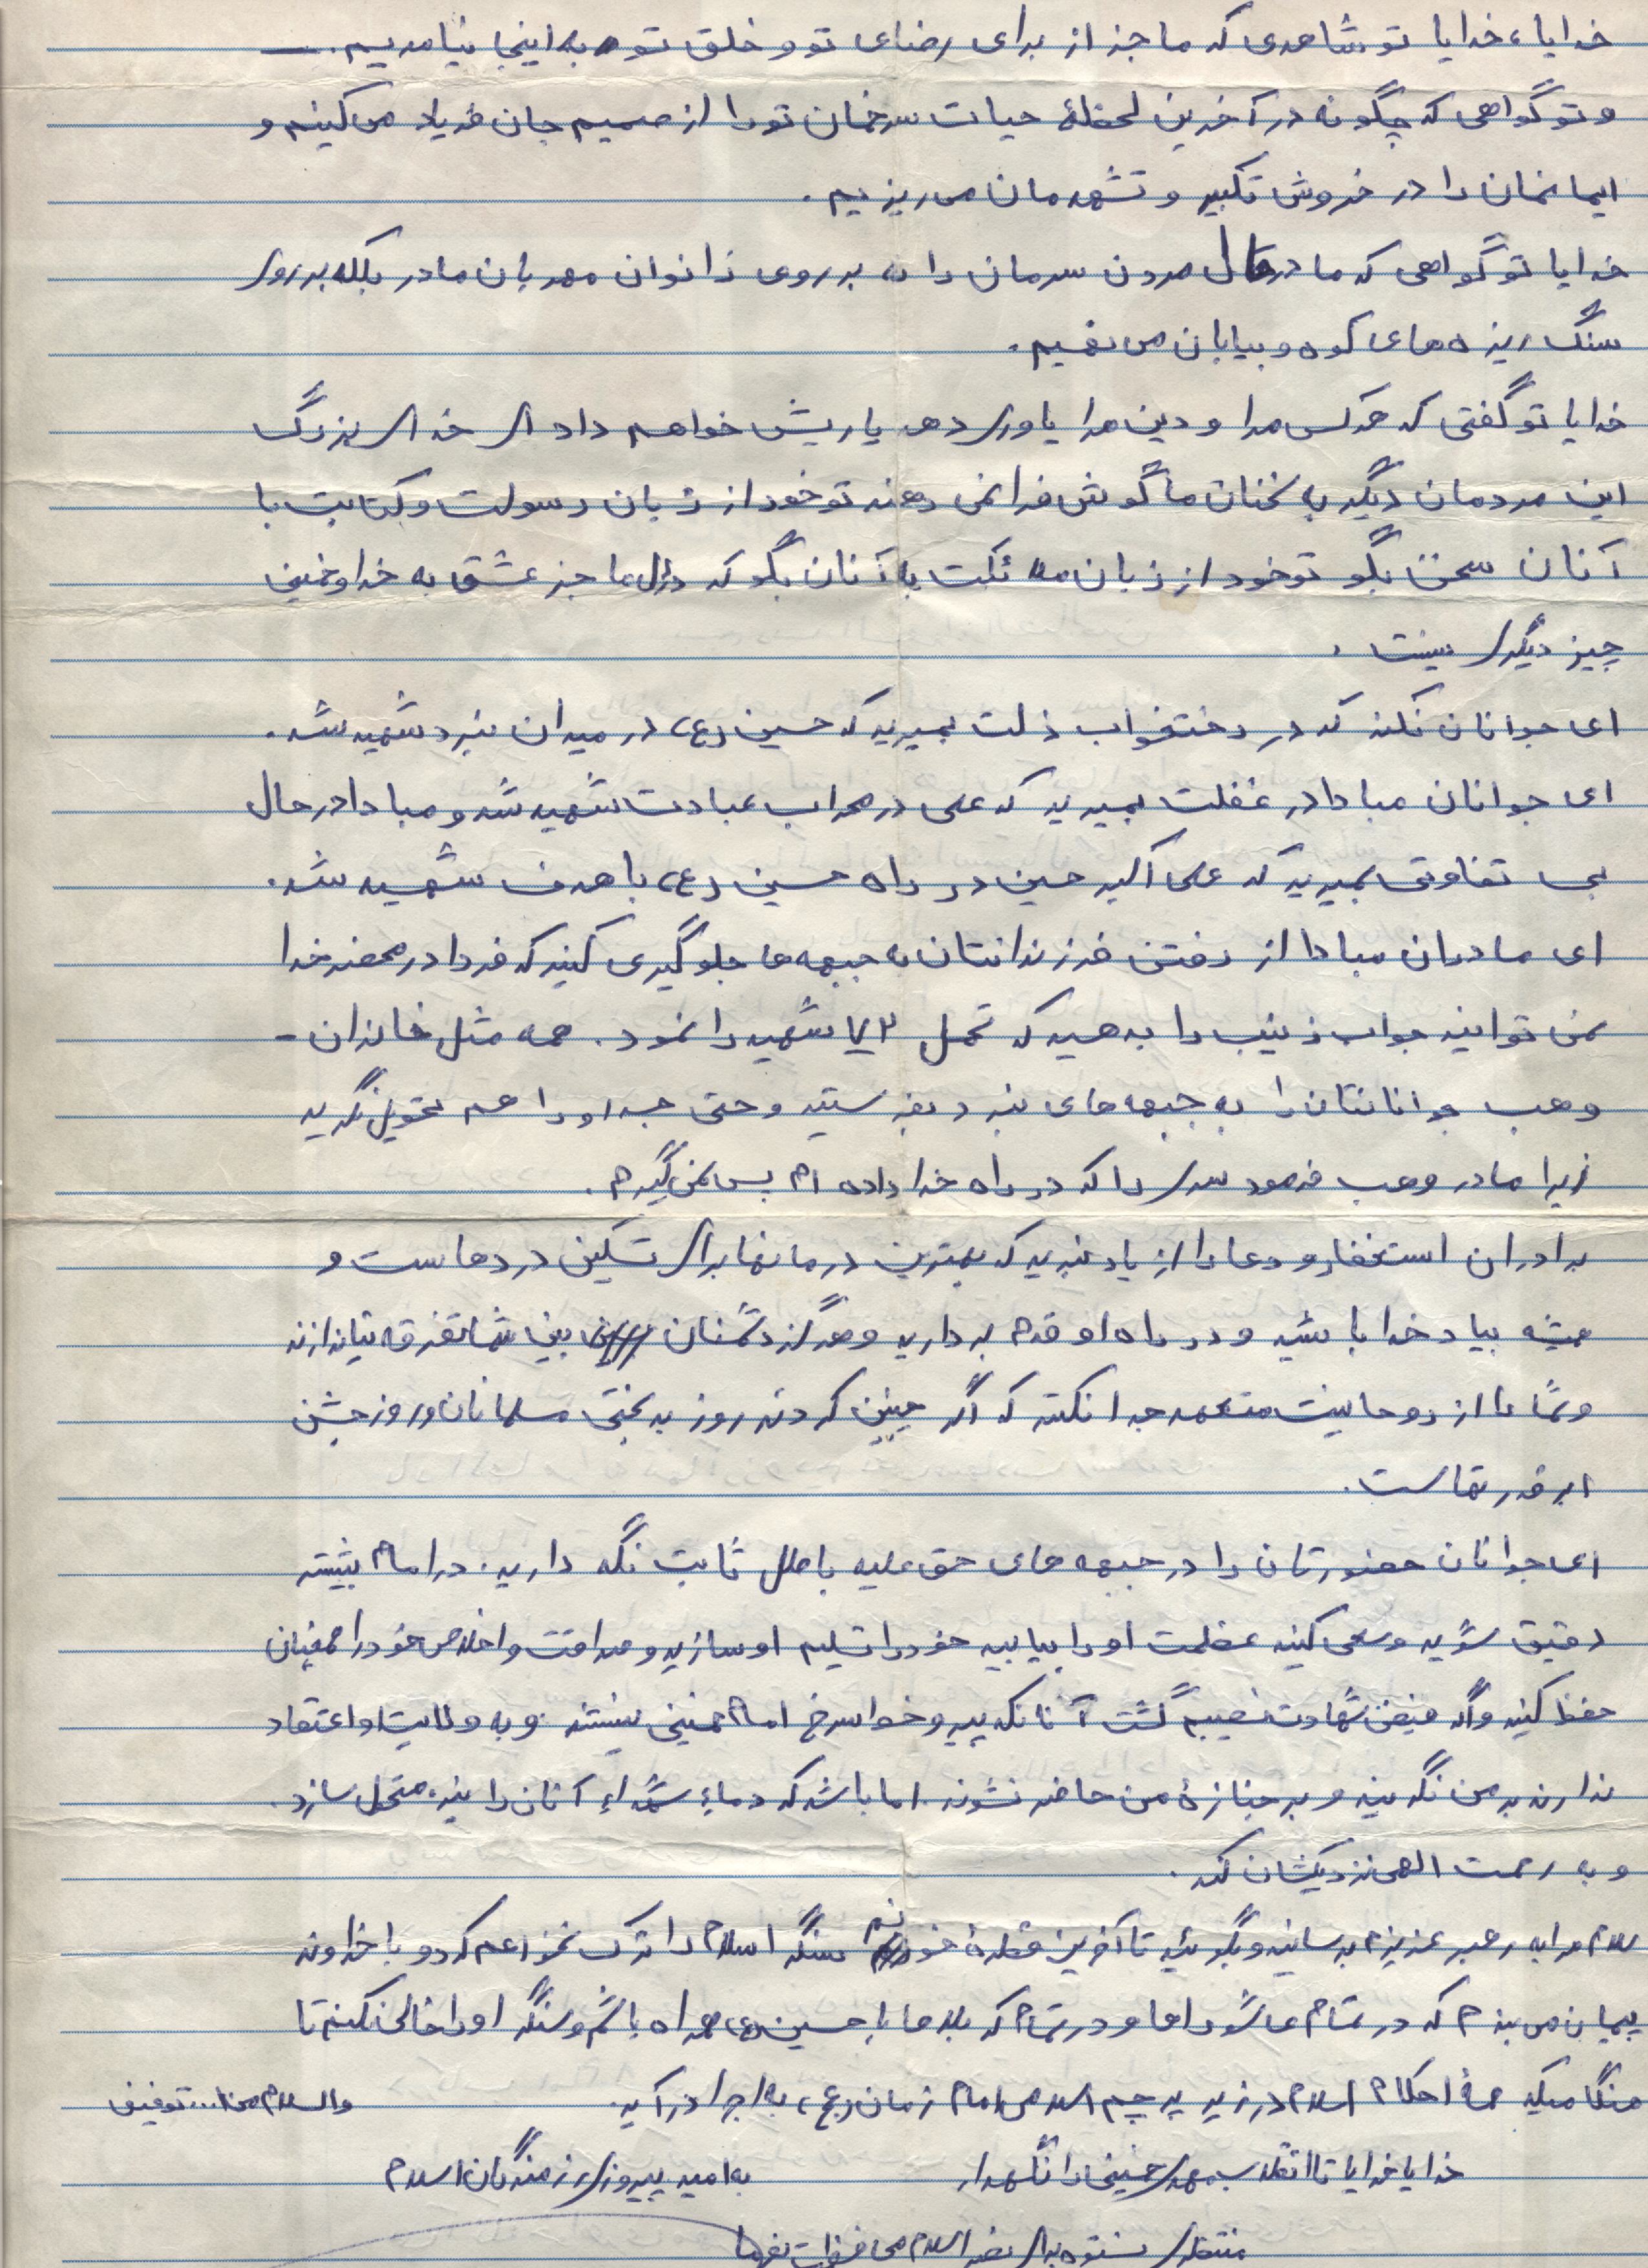 خدایا، خدایا تو شاهدی که ما جز از برای رضای تو و خلق تو به اینجا نیامدیم.
و تو گواهی که چگونه در آخرین لحظۀ حیات سرخمان تو را از صمیم جان فریاد می کنیم و
ایمانمان را در خروش تکبیر و تشهدمان می ریزیم.
خدایا تو گواهی که ما در حال مردن سرمان را نه بر روی زانوان مهربان مادر بلکه بر روی
سنگ ریزه های کوه و بیابان می نهیم.
خدایا تو گفتی که هر کس مرا و دین مرا یاوری دهد یاریش خواهم داد ای خدای بزرگ
این مردمان دیگر به سخنان ما گوش فرا نمی دهند تو خود از زبان رسولت و کتابت با
آنان سخن بگو تو خود از زبان ملائکت با آنان بگو که در دل ما جز عشق به خدا و خمینی
چیز دیگری نیست.
ای جوانان نکند که در رختخواب ذلت بمیرید که حسین (ع) در میدان نبرد شهید شد.
ای جوانان مبادا در غفلت بمیرید که علی در محراب عبادت شهید شد و مبادا در حال
بی تفاوتی بمیرید که علی اکبر حسین در راه حسین (ع) با هدف شهید شد.
ای مادران مبادا از رفتن فرزندانتان به جبهه ها جلوگیری کنید که فردا در محضر خدا
نمی توانید جواب زینب را بدهید که تحمل ۷۲ شهید را نمود. همه مثل خاندان -
وهب جوانانتان را به جبهه های نبرد بفرستید و حتی جسد او را هم تحویل نگیرید
زیرا مادر وهب فرمود سری را که در راه خدا داده ام پس نمی گیرم.
برادران استغفار و دعا را از یاد نبرید که بهترین درمانها برای تسکین دردهاست و
همیشه بیاد خدا باشید و در راه او قدم بردارید و هرگز دشمنان بین شما تفرقه نیاندازند
و شما را از روحانیت متعهد جدا نکنند که اگر چنین کردند روز بدبختی مسلمانان و روز جشن
ابرقدرتهاست.
ای جوانان حضورتان را در جبهه های حق علیه باطل ثابت نگه دارید. در امام بیشتر
دقیق شوید و سعی کنید عظمت او را بیابید خود را تسلیم او سازید و صداقت و اخلاص خود را همچنان
حفظ کنید و اگر فیض شهادت نصیبم گشت آنانکه پیرو خط سرخ امام خمینی نیستند و به ولایت او اعتقاد
ندارند بر من نگریند و بر جنازۀ من حاضر نشوند. اما باشد که دماء شهداء آنان را نیز متحول سازد.
و به رحمت الهی نزدیکشان کند.
سلام مرا به رهبر عزیزم برسانید و بگوئید تا آخرین قطرۀ خونم سنگر اسلام را ترک نخواهم کرد و با خداوند
پیمان می بندم که در تمام عاشوراها و در تمام کربلاها با حسین (ع) همراه باشم و سنگر او را خالی نکنم تا
هنگامیکه همۀ احکام اسلام در زیر پرچم اسلامی امام زمان (عج) به اجرا درآید.
والسلام من ا... توفیق
خدایا خدایا تا انقلاب مهدی خمینی را نگهدار
به امید پیروزی رزمندگان اسلام